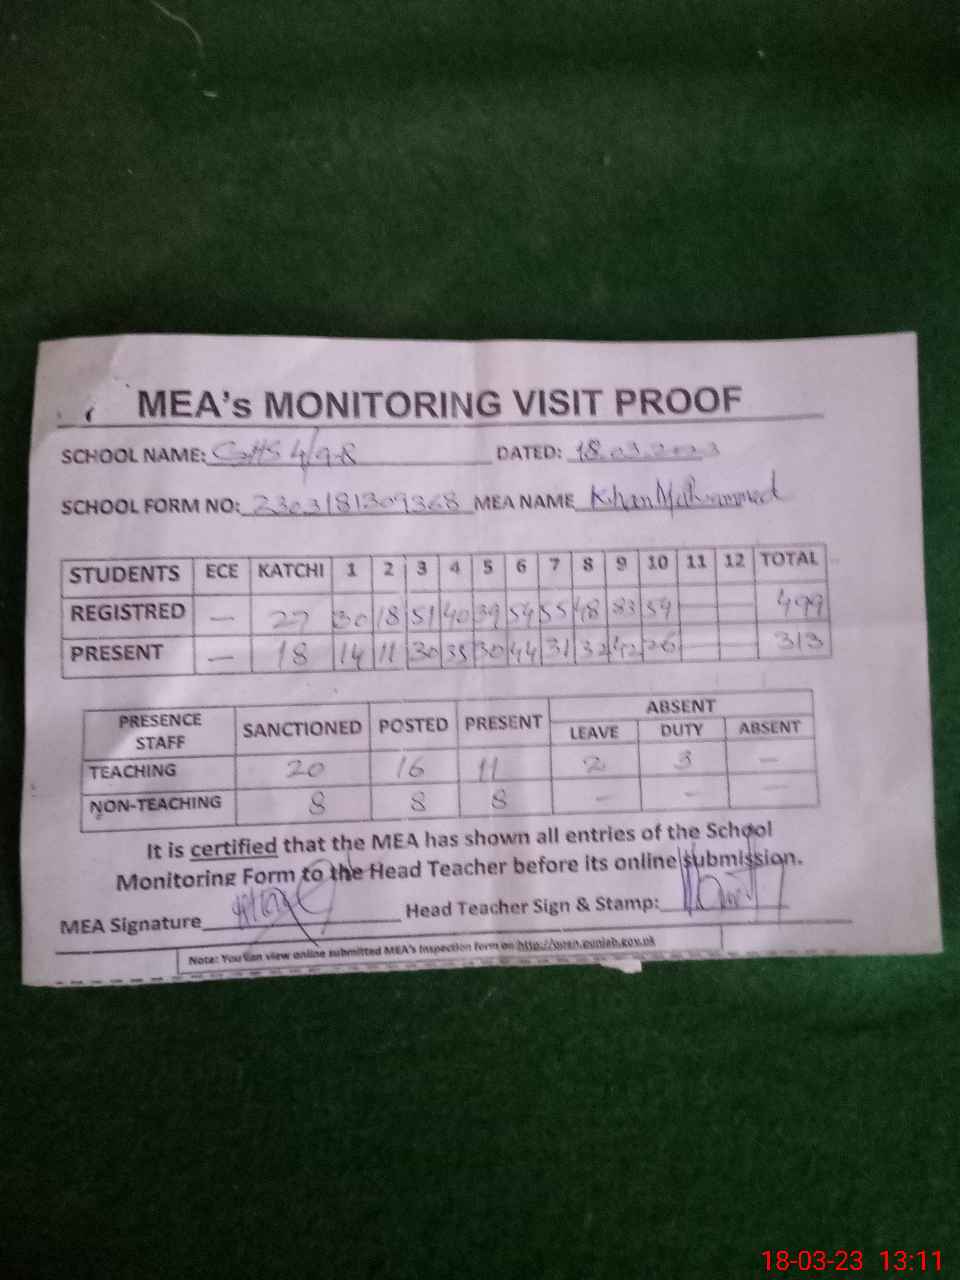 MEA's MONITORING VISIT PROOF
SCHOOL NAME: GHS 4/9-R DATED: 18.03.2023
SCHOOL FORM NO: 2303181309368 MEA NAME Khan Muhammed
STUDENTS ECE KATCHI 1 2 3 4 5 6 7 8 9 10 11 12 TOTAL
REGISTRED — 27 30 18 51 40 39 54 55 48 83 54 — — 499
PRESENT — 18 14 11 30 35 30 44 31 32 42 26 — — 313
PRESENCE STAFF SANCTIONED POSTED PRESENT ABSENT
LEAVE DUTY ABSENT
TEACHING 20 16 11 2 3 —
NON-TEACHING 8 8 8 — — —
It is certified that the MEA has shown all entries of the School
Monitoring Form to the Head Teacher before its online submission.
MEA Signature Head Teacher Sign & Stamp:
Note: You can view online submitted MEA's Inspection form on http://open.punjab.gov.pk
18-03-23 13:11